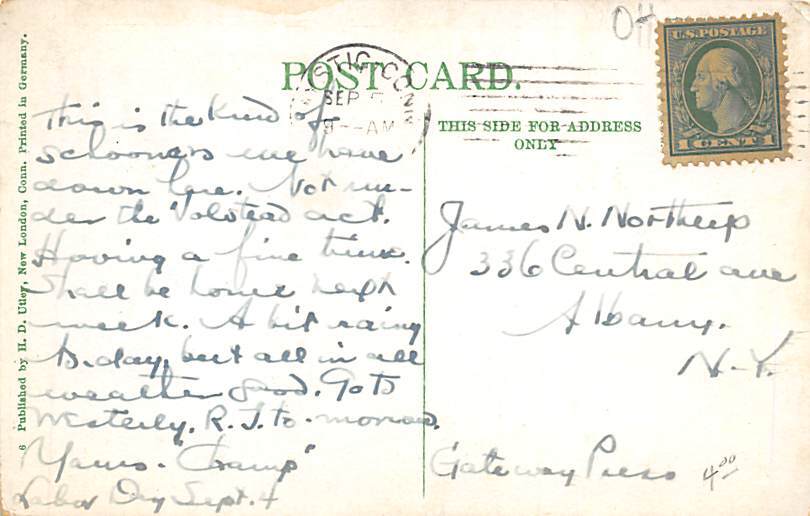 POST CARD.
THIS SIDE FOR ADDRESS
ONLY
MYSTIC CO
SEP 5
9--AM
1922
U.S. POSTAGE
1 CENT 1
OH
6 Published by H. D. Utley, New London, Conn. Printed in Germany.
This is the kind of
schooners we have
down here. Not un-
der the Volstead act.
Having a fine time.
Shall be home next
week. A bit rainy
to-day, but all in all
weather good. Go to
Westerly, R. I. to-morrow.
Yours - "Champ"
Labor Day Sept. 4
James N. Northrup
336 Central ave
Albany.
N.Y.
Gateway Press
4.00